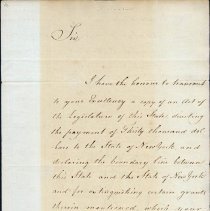 Sir
I have the honour to transmit
to your Excellency a copy of an Act of
the Legislature of this State, directing
the payment of Thirty thousand dol-
lars to the State of New York and
declaring the boundary line between
this State and the State of New York
and for extinguishing certain grants
therein mentioned which your